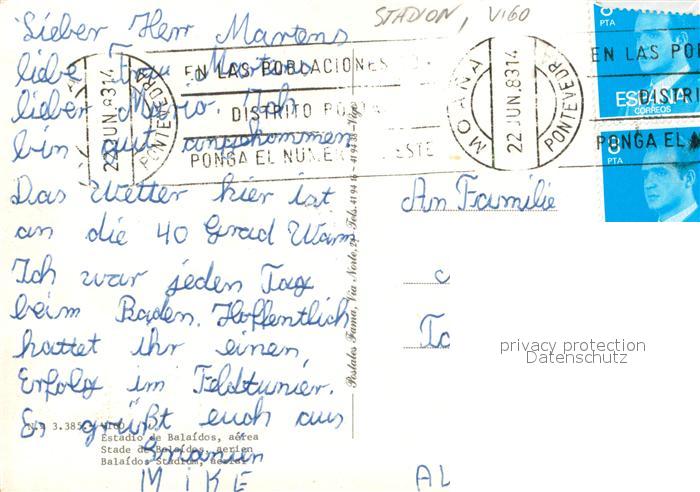 STADION, VIGO
Lieber Herr Martens
liebe Frau Martens
lieber Mario. Ich
bin gut angekommen
Das Wetter hier ist
an die 40 Grad Warm
Ich war jeden Tag
beim Baden. Hoffentlich
hattet ihr einen
Erfolg im Feldtunier.
Es grüßt euch aus
Spanien
MIKE
EN LAS POBLACIONES
DISTRITO PO
PONGA EL NUMER ESTE
22 JUN.83 14
PONTEVEDRA
MOAÑA
22 JUN.83 14
PONTEVEDR
EN LAS PO
DISTRI
PONGA EL
8
PTA
ESPAÑA
CORREOS
8
PTA
An Familie
AL
Postales Fama, Vía Norte, 24 Tels. 41 94 16 - 41 94 38 - Vigo
N.º 3.385. - VIGO
Estadio de Balaídos, aérea
Stade de Balaídos, aerien
Balaídos Stadium, aerial
privacy protection
Datenschutz